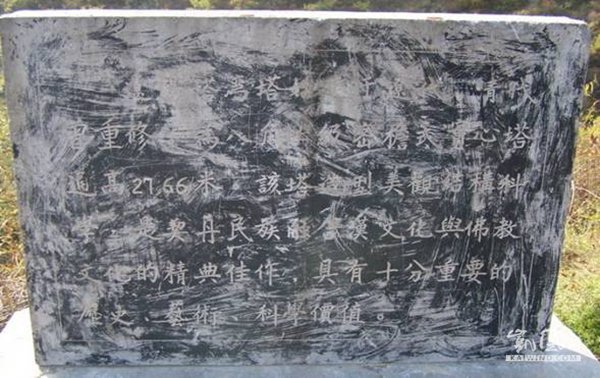 塔 清代
重修 八 密檐式實心塔
通高27.66米。該塔造型美觀結構科
學，是契丹民族融合漢文化與佛教
文化的精典佳作，具有十分重要的
歷史、藝術、科學價值。
KATWIND.COM